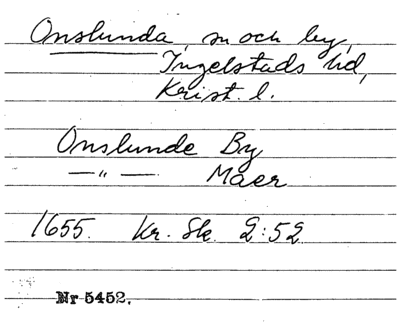 Onslunda, sn och by,
Ingelstads hd,
Krist. l.
Onslunde By
—"— Maer
1655. Kr. Sk. 2:52
Nr 5452.